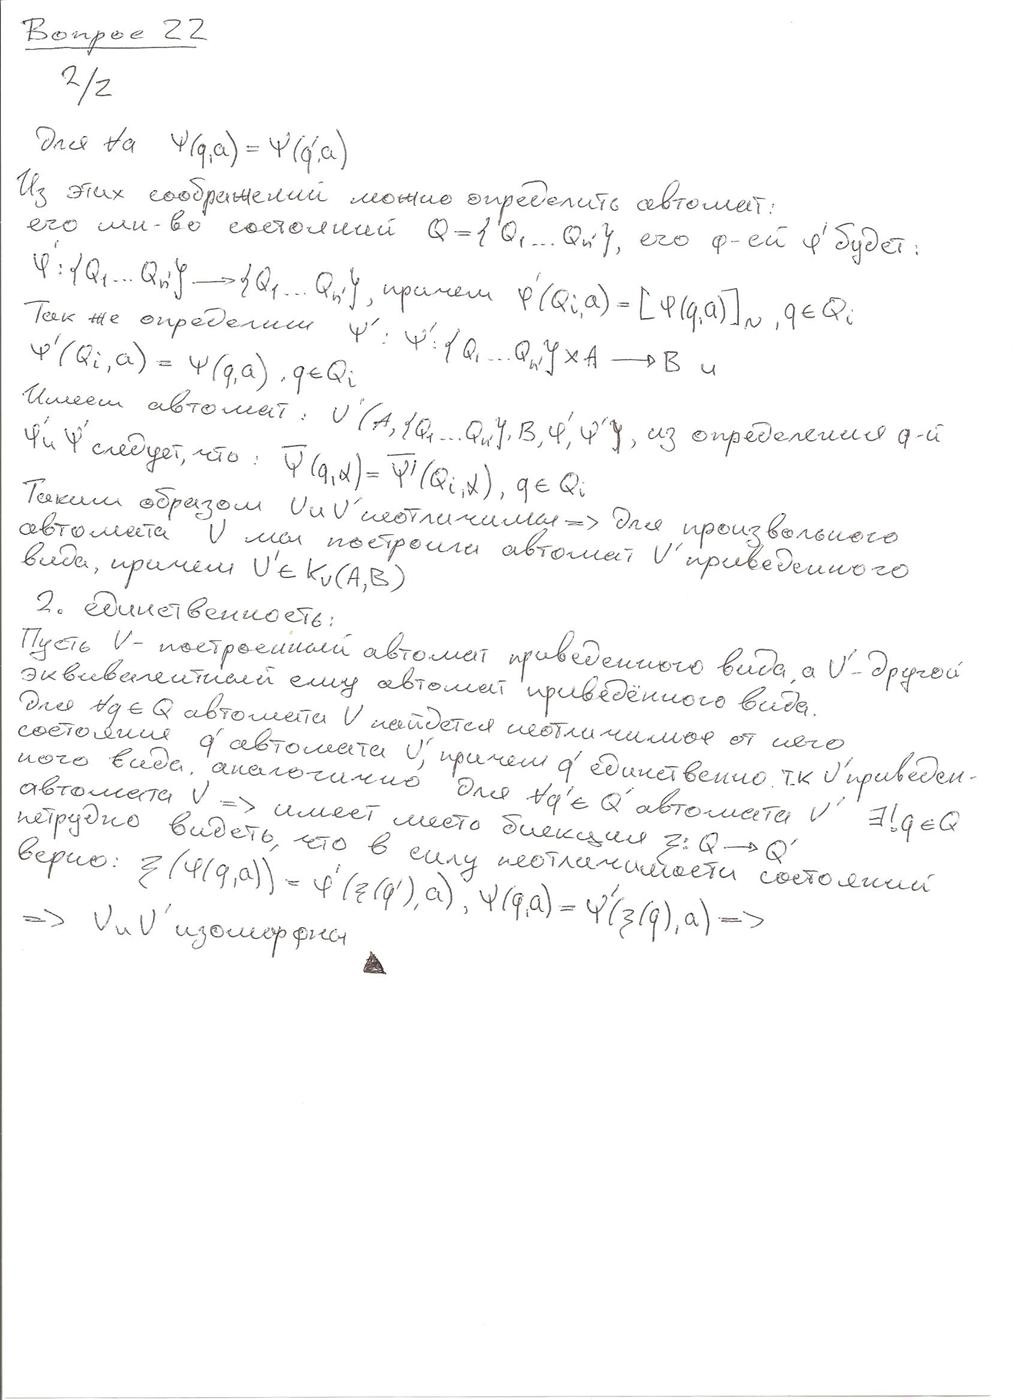 Вопрос 22
2/2
для ∀a Ψ(q,a) = Ψ(q',a)
Из этих соображений можно определить автомат:
его мн-во состояний Q = {Q₁...Qₙ'}, его ф-ей φ' будет:
φ': {Q₁...Qₙ'} → {Q₁...Qₙ'}, причем φ'(Qᵢ,a) = [φ(q,a)]~, q∈Qᵢ
Так же определим Ψ': Ψ': {Q₁...Qₙ'}×A → B и
Ψ'(Qᵢ,a) = Ψ(q,a), q∈Qᵢ
Имеем автомат: V'(A,{Q₁...Qₙ'},B,φ',Ψ'}, из определения ф-й
φ' и Ψ' следует, что: Ψ̅(q,α) = Ψ̅'(Qᵢ,α), q∈Qᵢ
Таким образом V и V' неотличимы => для произвольного
автомата V мы построили автомат V' приведенного
вида, причем V'∈Kᵥ(A,B)
2. единственность:
Пусть V - построенный автомат приведенного вида, а V' - другой
эквивалентный ему автомат приведённого вида.
Для ∀q∈Q автомата V найдется неотличимое от него
состояние q' автомата V', причем q' единственно. т.к V' приведен-
ного вида. аналогично для ∀q'∈Q' автомата V' ∃!q∈Q
автомата V => имеет место биекция ξ: Q → Q'
нетрудно видеть, что в силу неотличимости состояний
верно: ξ(φ(q,a)) = φ'(ξ(q'),a), Ψ(q,a) = Ψ'(ξ(q),a) =>
=> V и V' изоморфны